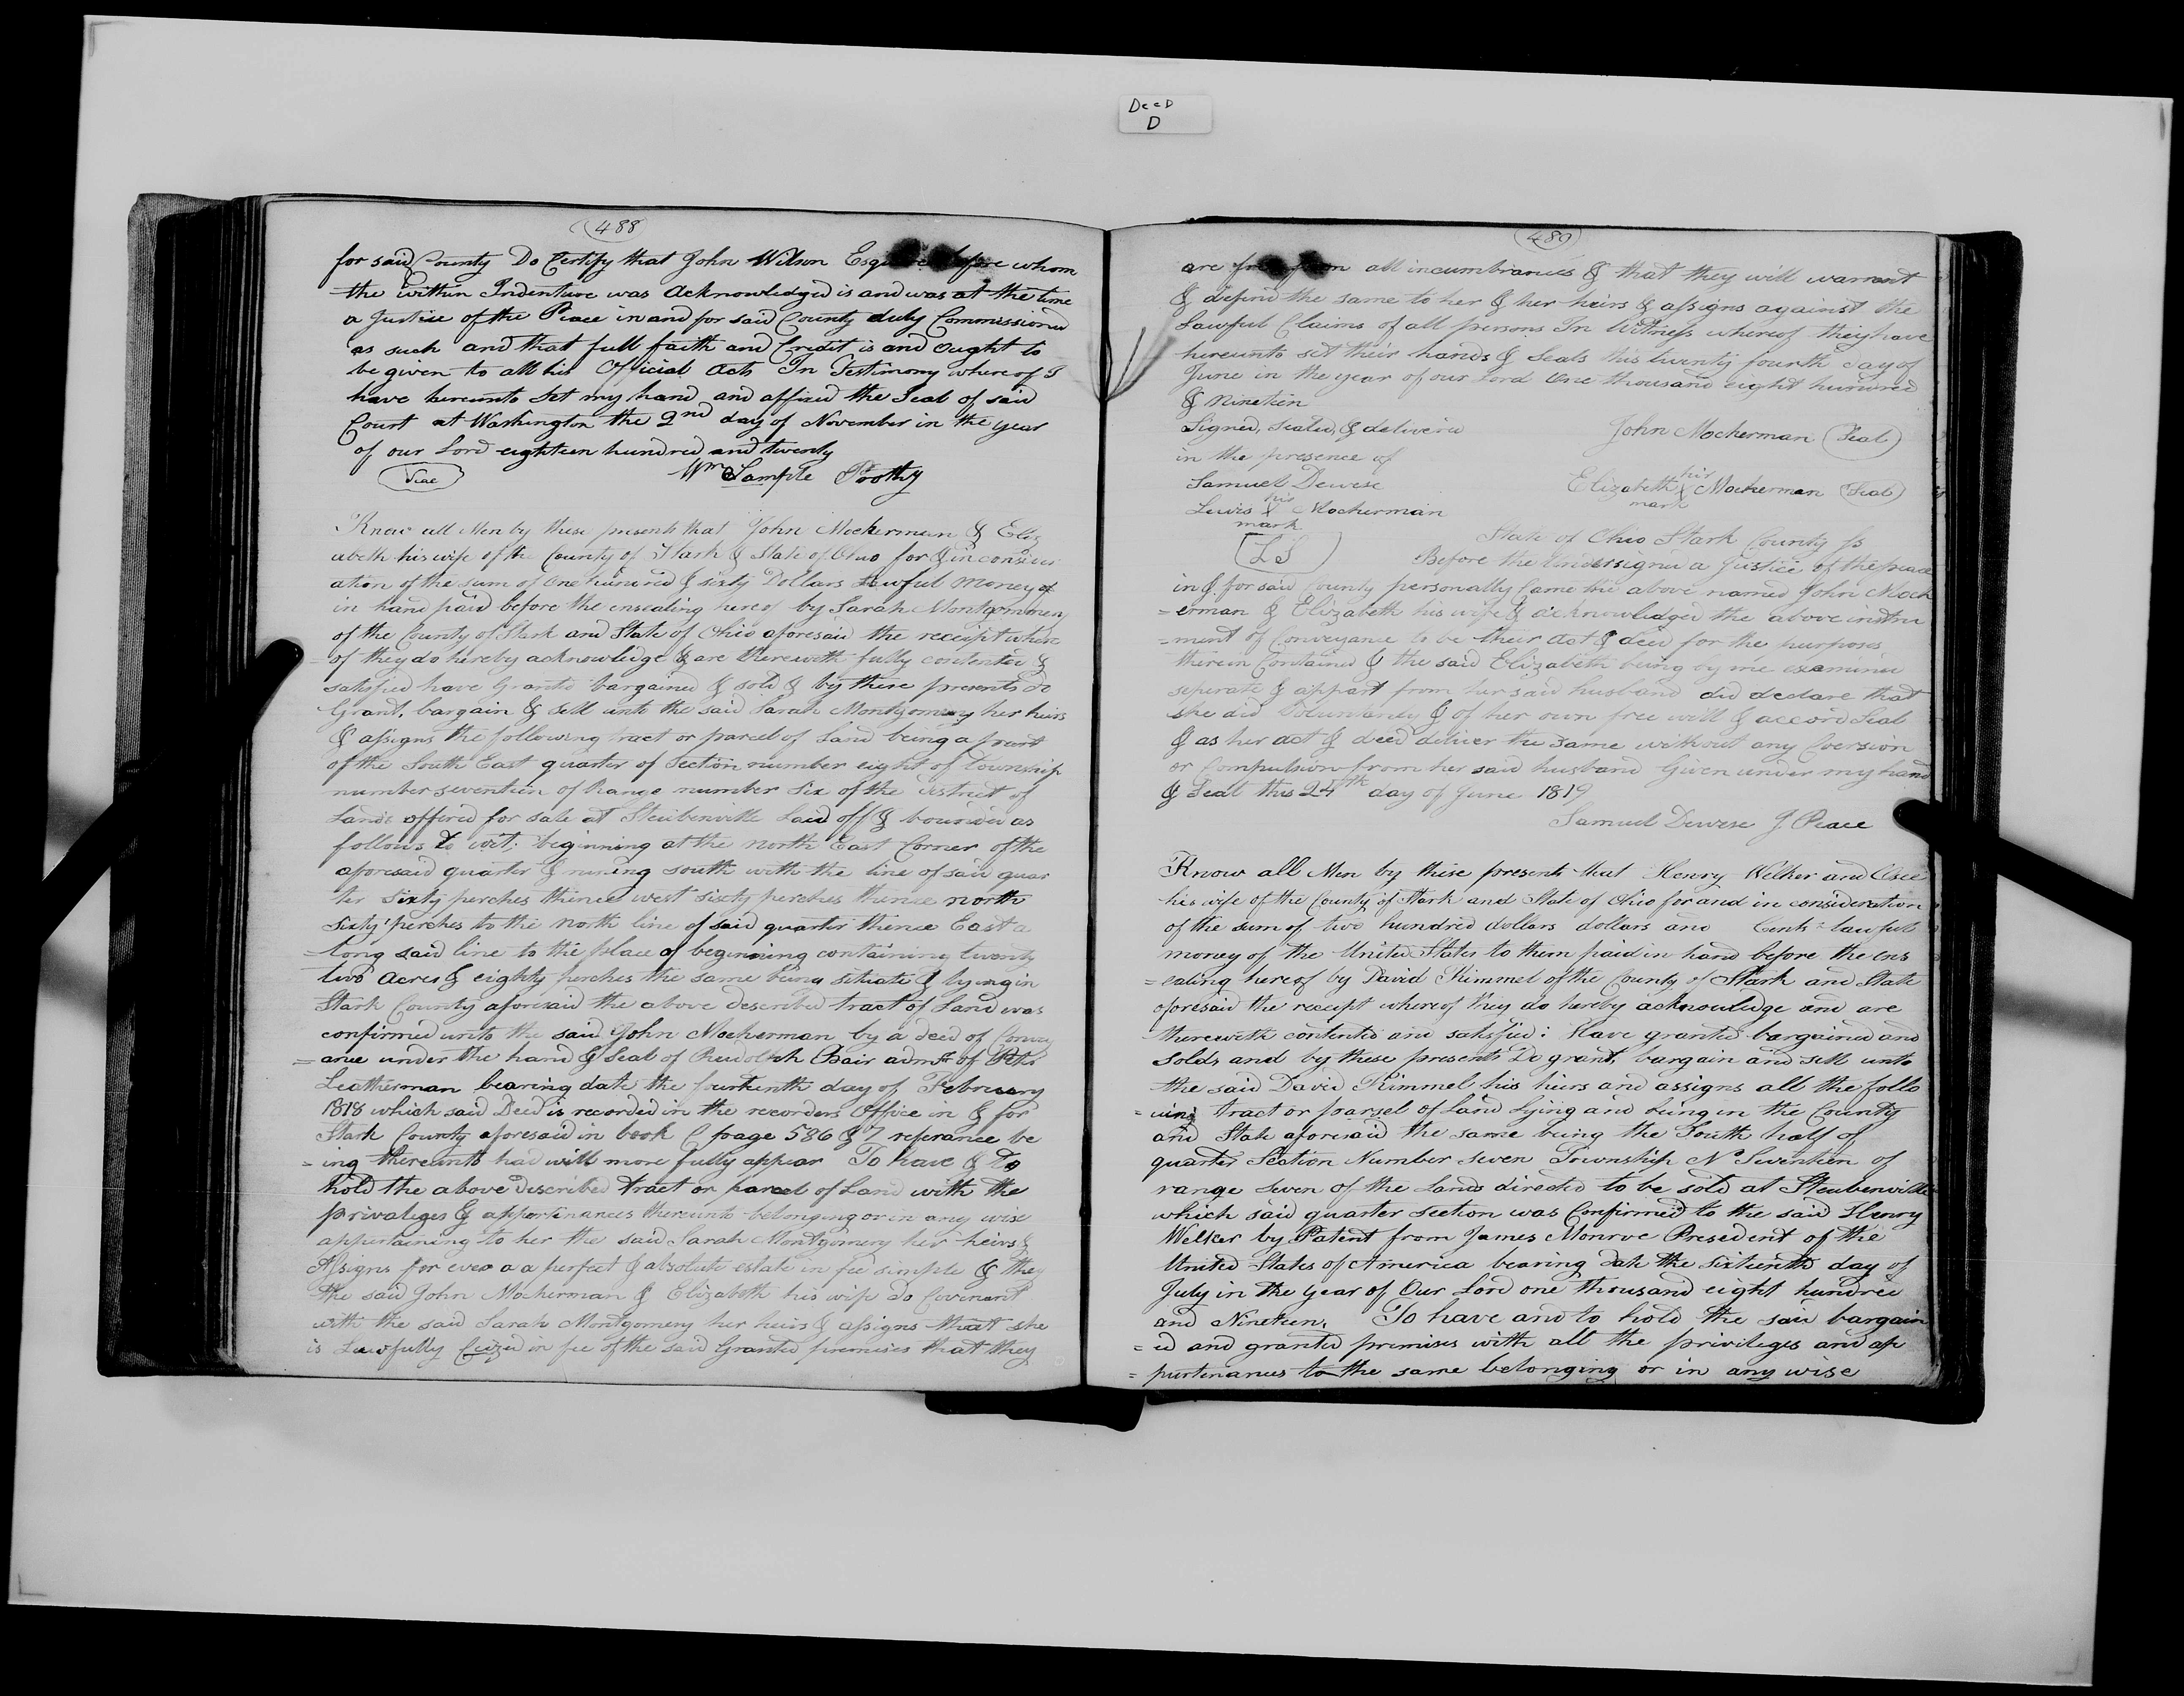 Deed
D
488
for said County Do Certify that John Wilson Esquire before whom
the within Indenture was acknowledged is and was at the time
a Justice of the Peace in and for said County duly Commissioned
as such and that full faith and Credit is and ought to
be given to all his Official acts In Testimony whereof I
have hereunto set my hand and affixed the Seal of said
Court at Washington the 2nd day of November in the year
of our Lord eighteen hundred and twenty
Seal
Wm Sample Prothy
Know all Men by these presents that John Mockerman & Eliz
abeth his wife of the County of Stark & State of Ohio for & in consider
ation of the sum of One hundred & sixty Dollars Lawful Money of
in hand paid before the ensealing hereof by Sarah Montgomery
of the County of Stark and State of Ohio aforesaid the receipt where
of they do hereby acknowledge & are therewith fully contented &
satisfied have Granted bargained & sold & by these presents do
Grant, bargain & sell unto the said Sarah Montgomery her heirs
& assigns the following tract or parcel of Land being a part
of the South East quarter of Section number eight of township
number seventeen of Range number Six of the district of
Lands offered for sale at Steubenville Laid off & bounded as
follows to wit; beginning at the north East Corner of the
aforesaid quarter & runing south with the line of said quar
ter sixty perches thence west sixty perches thence north
sixty perches to the north line of said quarter thence East a
long said line to the place of beginning containing twenty
two acres & eighty perches the same being situate & lying in
Stark County aforesaid the above described tract of Land was
confirmed unto the said John Mockerman by a deed of Convey
=ance under the hand & Seal of Rudolph Bair admr of Peter
Leatherman bearing date the fourteenth day of February
1818 which said Deed is recorded in the recorders Office in & for
Stark County aforesaid in book C page 586 & 7 referance be
=ing thereunto had will more fully appear To have & To
hold the above Described tract or parcel of Land with the
privaleges & appertinances thereunto belonging or in any wise
appertaining to her the said Sarah Montgomery her heirs &
Assigns for ever a a perfect & absolute estate in fee simple & they
the said John Mockerman & Elizabeth his wife do Covenant
with the said Sarah Montgomery her heirs & assigns that she
is Lawfully Seized in fee of the said Granted premises that they
489
are free from all incumbrances & that they will warrant
& defend the same to her & her heirs & assigns against the
Lawful Claims of all persons In Witness whereof they have
hereunto set their hands & Seals this twenty fourth day of
June in the year of our Lord One thousand eight hundred
& Nineteen
Signed, sealed, & delivered
John Mockerman Seal
in the presence of
Samuel Dewese
Elizabeth her X mark Mockerman Seal
Lewis his X mark Mockerman
State of Ohio Stark County ss
LS
Before the Undersigned a Justice of the peace
in & for said County personally Came the above named John Mock
=erman & Elizabeth his wife & acknowledged the above instru
=ment of Conveyance to be their Act & deed for the purposes
therein Contained & the said Elizabeth being by me examined
seperate & appart from her said husband did declare that
she did Voluntarily & of her own free will & accord Seal
& as her act & deed deliver the same without any Coersion
or Compulsion from her said husband Given under my hand
& Seal this 24th day of June 1819
Samuel Dewese J. Peace
Know all Men by these presents that Henry Welker and
his wife of the County of Stark and State of Ohio for and in consideration
of the sum of two hundred dollars dollars and Cents lawful
money of the United States to them paid in hand before the ens
=ealing hereof by David Kimmel of the County of Stark and State
aforesaid the receipt whereof they do hereby acknowledge and are
therewith contented and satisfied: Have granted bargained and
solds and by these presents Do grant, bargain and sell unto
the said David Kimmel his heirs and assigns all the follo
=wing tract or parsel of Land Lying and being in the County
and State aforesaid the same being the South half of
quarter Section Number seven Township No Seventeen of
range seven of the Lands directed to be sold at Steubenville
which said quarter section was Confirmed to the said Henry
Welker by Patent from James Monroe President of the
United States of America bearing date the Sixteenth day of
July in the year of Our Lord one thousand eight hundred
and Nineteen, To have and to hold the said bargain
=ed and granted premises with all the privileges and ap
=purtenances to the same belonging or in any wise